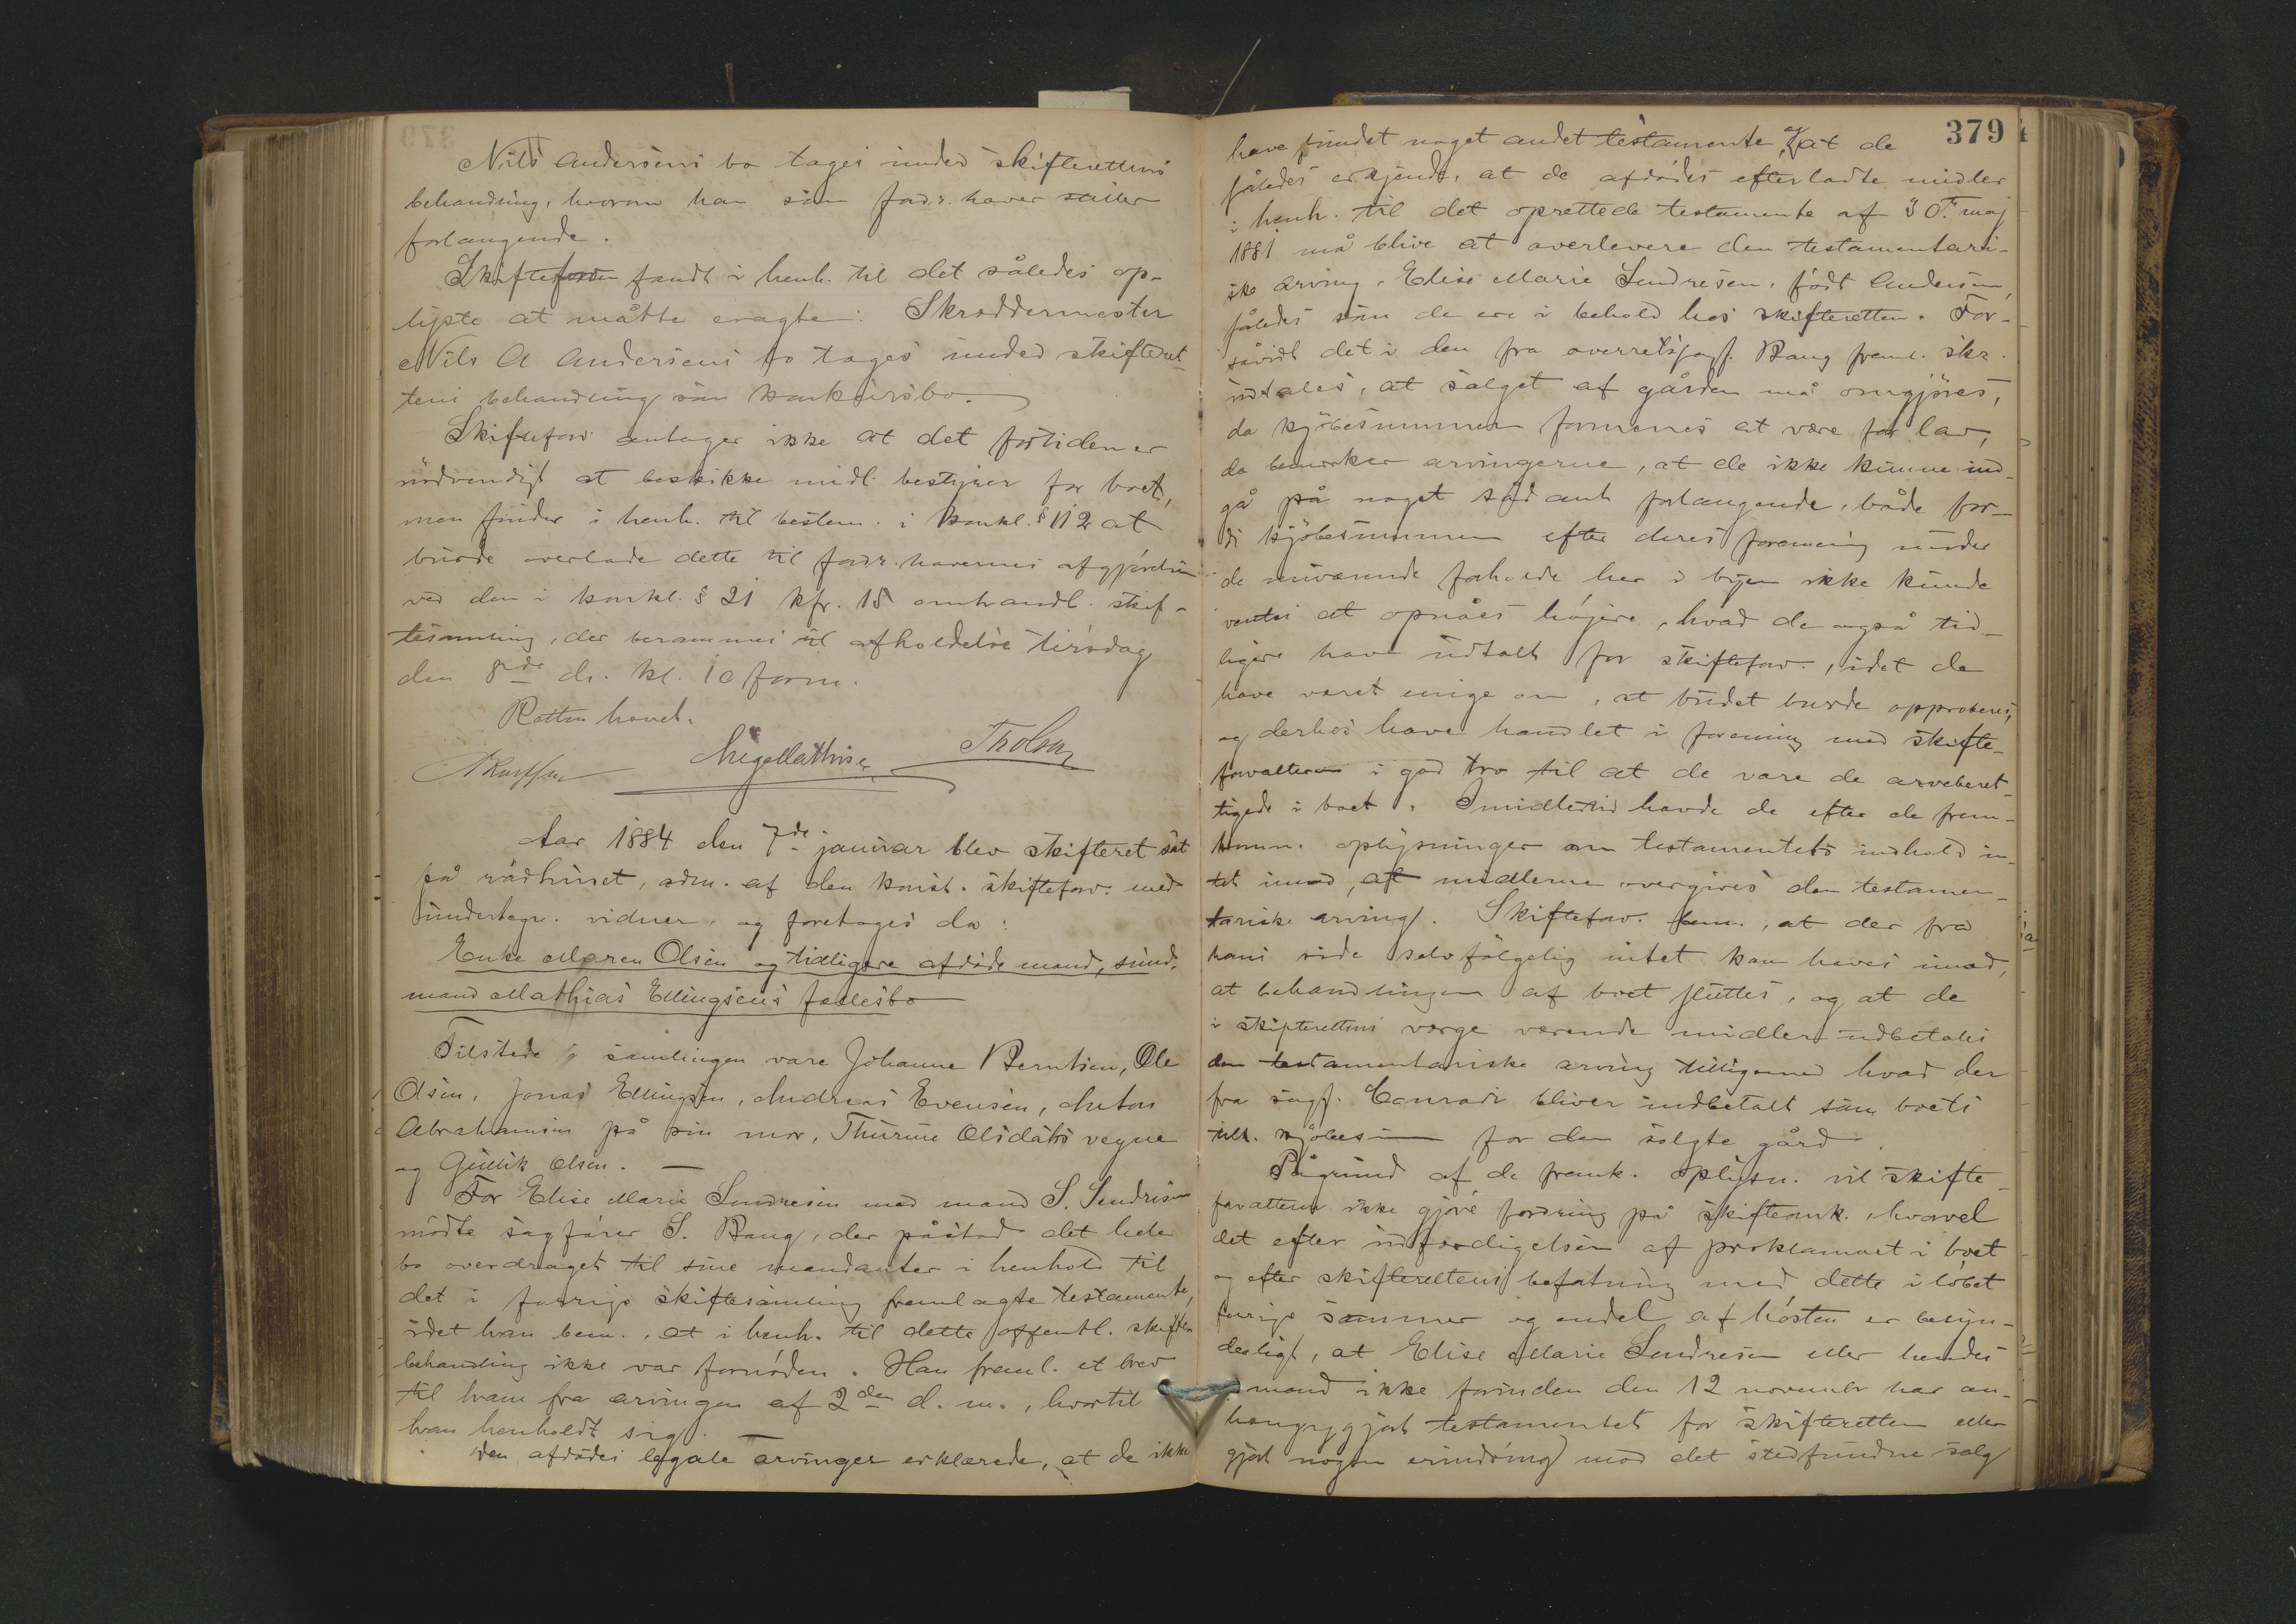 Nils Andersens bo tages under skifterettens
behandling, hvorom han som ford.s haver stiller
forlangende.
Skifteforv fandt i henh. til det således op-
lyste at måtte eragte: Skreddermester
Nils A Andersens bo tages under skifteret-
tens behandling som konkursbo.
Skifteforv. antager ikke at det fortiden er
nödvendigt at beskikke midl. bestyrer for boet,
men finder i henh. til bestem. i konkl. § 112 at
burde overlade dette til fordr.havernes afgjörelse
ved den i konkl. § 21 kfr. 15 omhandl. skif-
tesamling, der berammes til afholdelse tirsdag
den 8de ds. kl. 10 form.
Retten hævet.
Aar 1884 den 7de januar blev skifteret sat
på rådhuset, adm. af den const. skifteforv. med
undertegn. vidner, og foretoges da:
Enke Maren Olsen og tidligere afdöde mand, sund-
mand Mathias Ellingsens fællesbo
Tilstede i samlingen vare Johanne Berntsen, Ole
Olsen, Jonas Ellingsen, Andreas Evensen, Anton
Abrahamsen på sin mor, Thurine Olsdatts vegne
og Gullik Olsen. —
For Elise Marie Sendresen med mand S. Sendresen
mödte sagförer S. Bang, der påstod det hele
bo overdraget til sine mandanter i henhold til
det i forrige skiftesamling fremlagte testamente,
idet han bem., at i henh. til dette offentl. skifte-
behandling ikke var fornöden. Han freml. et brev
til ham fra arvingen af 2den d. m., hvortil
han henholdt sig. —
Den afdödes legale arvinger erklærede, at de ikke
379
have fundet noget andet testamente, og at de
således erkjendte, at de afdödes efterladte midler
i henh. til det oprettede testamente af 30. maj
1881 må blive at overlevere den testamentari-
ske arving, Elise Marie Sendresen, født Andersen,
således som de ere i behold hos skifteretten. For-
såvidt det i den fra overretssagf. Bang freml. skr.
udtales, at salget af gården må omgjöres,
da kjöbesummen formenes at være for lav,
da bemerker arvingerne, at de ikke kunne ind-
gå på noget sådant forlangende, både for-
di kjöbesummen efter deres formening under
de nuværende forholde her i byen ikke kunde
ventes at opnåes höjere, hvad de også tid-
ligere have udtalt for skifteforv., idet de
have været enige om, at budet burde approberes,
og derhos have handlet i forening med skifte-
forvalteren i god tro til at de vare de arveberet-
tigede i boet. Imidlertid havde de efter de frem-
komn. oplysninger om testamentets indhold in-
tet imod, at midlerne overgives den testamen-
tariske arving. Skifteforv. bem., at der fra
hans side selvfölgelig intet kan haves imod,
at behandlingen af boet sluttes, og at de
i skifterettens værge værende midler udbetales
den testamentariske arving tilligemed hvad der
fra sagf. Conradi bliver indbetalt som boets
tilk. kjöbesum for den solgte gård.
Pågrund af de fremk. oplysn. vil skifte-
forvalteren ikke gjöre fordring på skifteomk., hvorvel
det efter udferdigelsen af proklamaet i boet
og efter skifterettens befatning med dette i löbet
forrige sommer og endel af hösten er besyn-
derligt, at Elise Marie Sendresen eller hendes
mand ikke forinden den 12 november har an-
hængiggjort testamentet for skifteretten eller
gjort nogen erindring mod det stedfundne salg